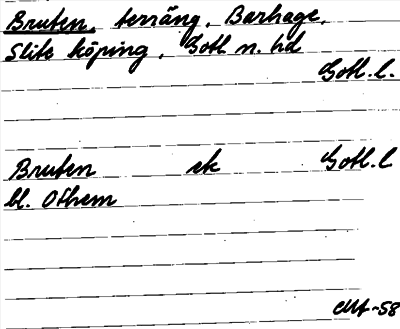 Bruten, terräng, Barhage,
Slite köping, Gotl. n. hd
Gotl. l.
Bruten ek Gotl. l
bl. Othem
-58